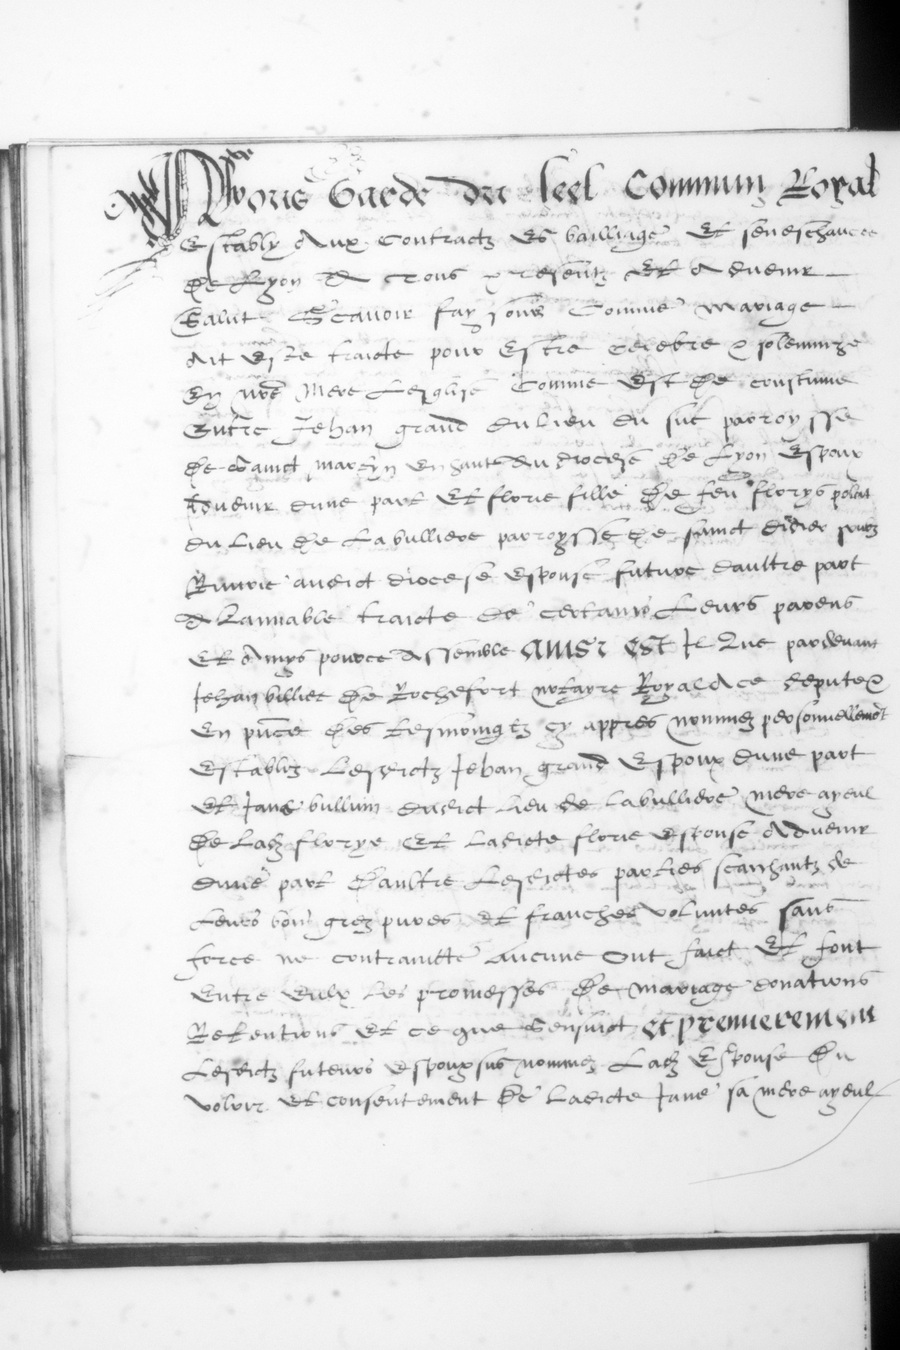 Nous Garde du seel Commun Royal
Estably Aux Contractz Es bailliage Et seneschaucee
De Lyon A Tous presentz Et Advenir
Salut Scavoir faysons Comme mariage
Ait Este traicte pour Estre celebre & solempnize
En nre Mere Lesglise Comme Est De coustume
Entre Jehan grand du Lieu du suc parroysse
De sainct martyn en hault du diocese De Lyon Espoux
Advenir dune part Et florie fille De feu florys polat
du Lieu De Labulliere parroysse De sainct didier soubz
Riverie audict diocese Espouse future daultre part
A Lamiable traicte De certains Leurs parens
Et Amys pource Assemble ainsi est Il Que pardevant
Jehan billiet De Rochefort notayre Royal A ce depute &
En pnce Des tesmoingtz cy appres nommez personnellement
Establiz Lesdictz Jehan grand Espoux dune part
Et Jane bullim dudict Lieu de Labulliere mere ayeul
De Ladz florye Et Ladicte florie Espouse Advenir
dune part Daultre Lesdictes parties scaichantz de
Leurs bon grez pures et franches voluntes sans
force ne contraincte Aucune Ont faict Et font
Entre Eulx Les promesses De mariage donations
Retentions Et ce que sensuict et premierement
Lesdictz futeurs espoux sus nommez Ladz Espouse Du
voloir Et consentement De Ladicte Jane sa mere ayeul